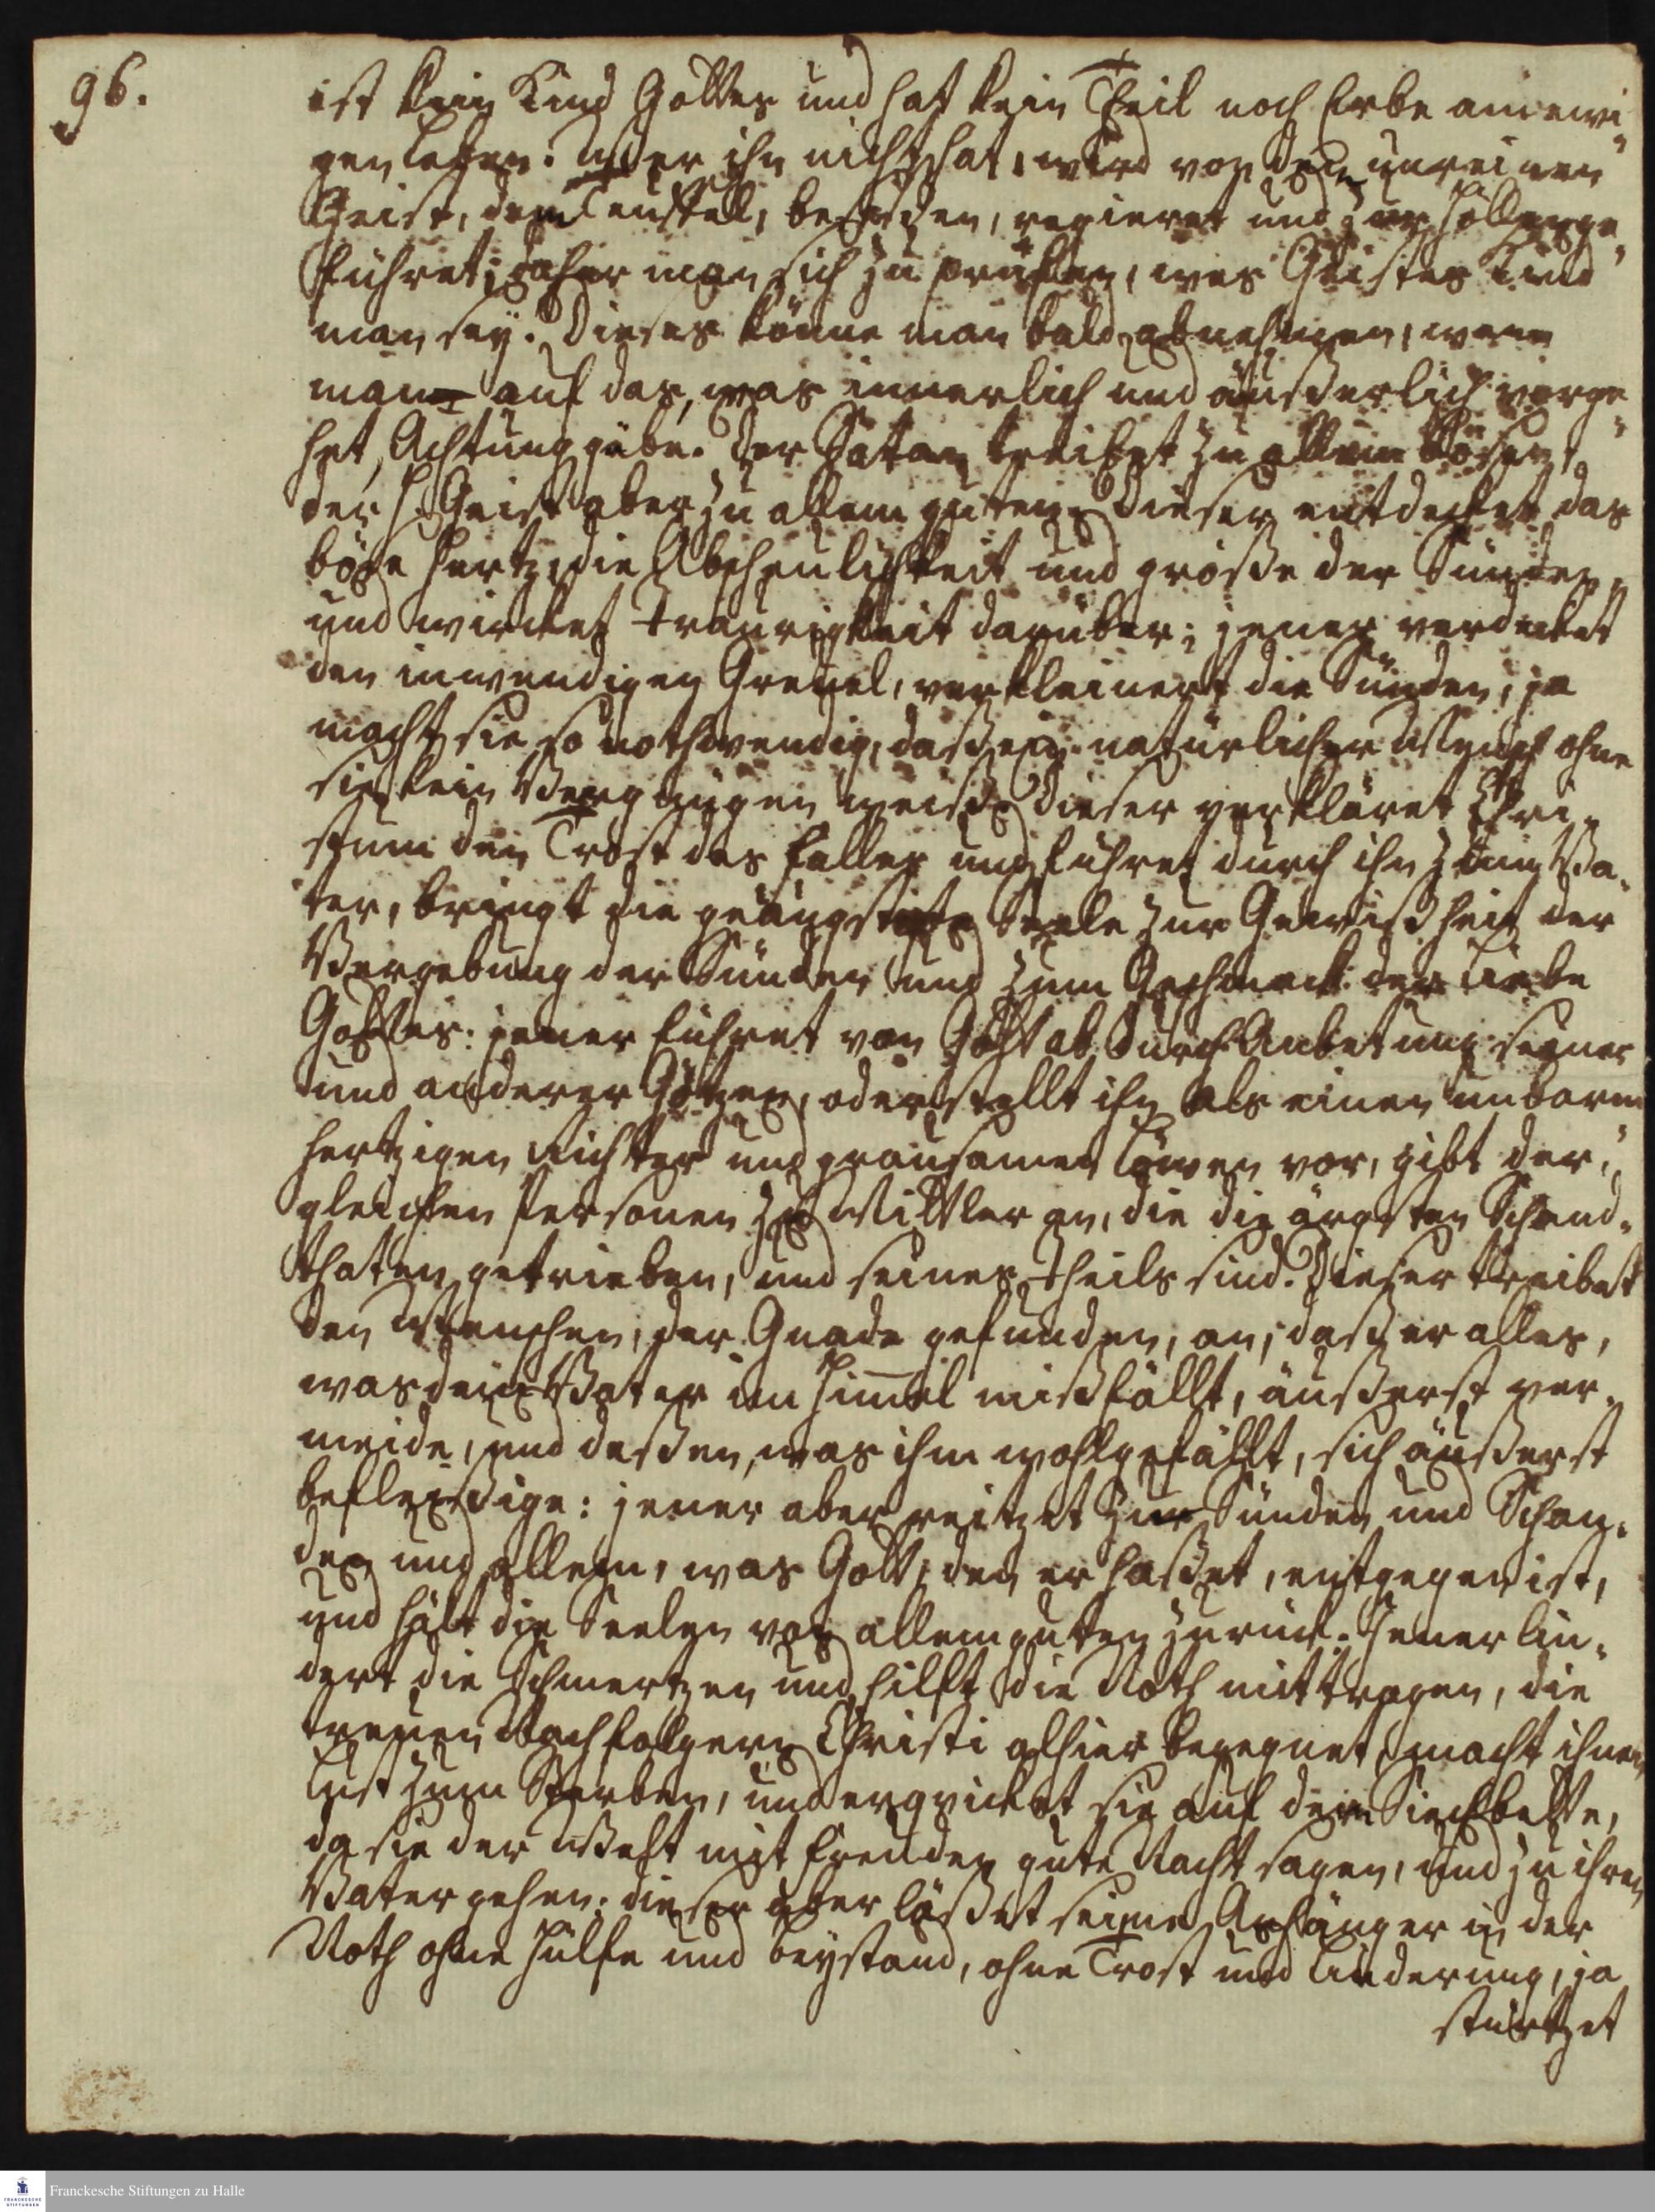 96.
ist kein Kind Gottes und hat kein Theil noch Erbe am ewi-
gen Leben. Wer ihn nicht hat, wird von dem unreinen
Geist, dem Teuffel, beseßen, regieret und zur Höllen ge-
führet; daher man sich zu prüfen, wes Geistes Kind
man sey. Dieses könne man bald abnehmen, wenn
man auf das, was innerlich und äußerlich vorge-
het, Achtung gäbe. Der Satan treibet zu allem bösen,
der H. Geist aber zu allem guten. Dieser entdecket das
böse Hertz, die Abscheulichkeit und größe der Sünden,
und wircket Traurigkeit darüber; jener verdecket
den inwendigen Greuel, verkleinert die Sünden, ja
macht sie so nothwendig, daß ein natürlicher Mensch ohne
sie kein Vergnügen weiß. Dieser verkläret Chri-
stum den Trost des Falles und führet durch ihn zum Va-
ter, bringt die geängstete Seele zur Gewißheit der
Vergebung der Sünden und zum Geschmack der Liebe
Gottes: jener führet von Gott ab durch Anbetung seiner
und anderer Götzen, oder stellt ihn als einen unbarm
hertzigen Richter und grausamen Löwen vor, gibt der-
gleichen Personen zu Mittler an, die die ärgsten Schand-
thaten getrieben, und seines Theils sind. Dieser treibet
den Menschen, der Gnade gefunden, an, daß er alles,
was dem Vater im Himmel mißfällt, äußerst ver-
meide, und deßen, was ihm wohlgefällt, sich äußerst
befleißige: jener aber reitzet zur Sünden und Schan-
den und allem, was Gott, den er haßet, entgegen ist,
und hält die Seelen von allem guten zurück. Jener lin-
dert die Schmertzen und hilfft die Noth mittragen, die
treuen Nachfolgern Christi alhier begegnet, macht ihnen
Lust zum Sterben, und erquicket sie auf dem Siechbette,
da sie der Welt mit Freuden gute Nacht sagen, und zu ihren
Vater gehen: dieser aber läßet seine Anhänger in der
Noth ohne Hülfe und Beystand, ohne Trost und Linderung, ja
stürtzet
FRANCKESCHE STIFTUNGEN
Franckesche Stiftungen zu Halle